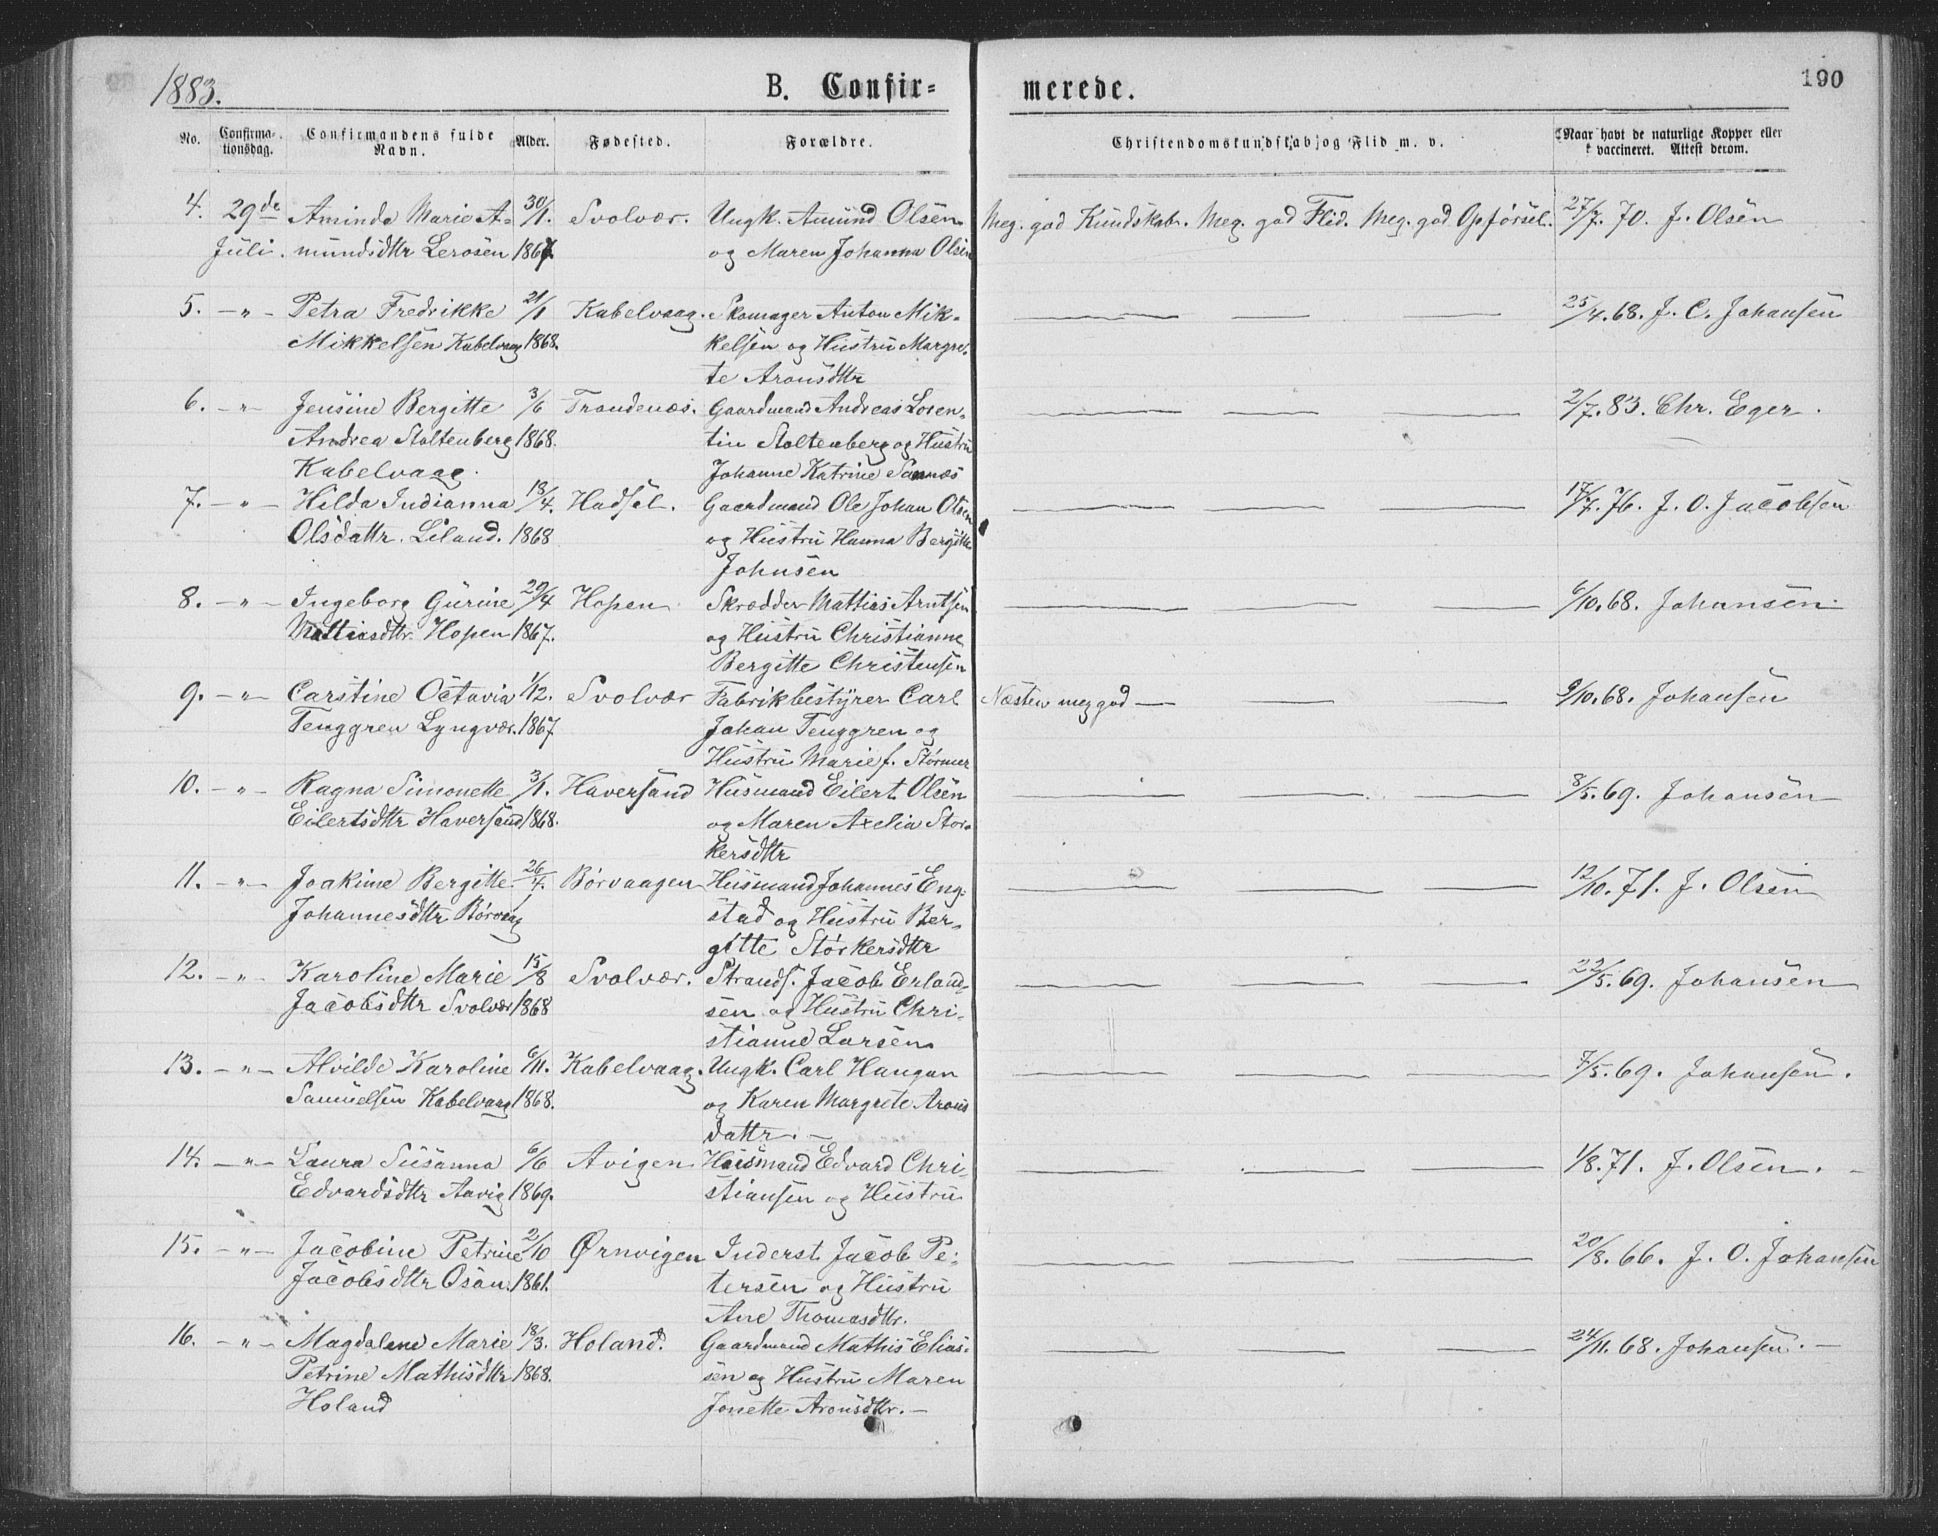 1883. B. Confir= merede. 190
No. Confirma-tionsdag. Confirmandens fulde Navn. Alder. Fødested. Forældre. Christendomskundskab og Flid m. v. Naar havt de naturlige Kopper eller vaccineret. Attest derom.
4. 29de Aminda Marie A= 30/1. Svolvær. Ungk. Amund Olsen Meg. god Kundskab. Meg. god Flid. Meg. god Opførsel. 27/7. 70. J. Olsen
Juli. mundsdttr Lerosen 1867 og Maren Johanna Olsen
5. —"— Petra Fredrikke 21/1 Kabelvaag. Skomager Anton Mik= — — — 25/4. 68. J. C. Johansen
Mikkelsen Kabelvaag 1868. kelsen og Hustru Margre=
te Aronsdttr
6. —"— Jensine Bergitte 3/6 Trondenæs. Gaardmand Andreas Loren= — — — 2/7. 83. Chr. Eger.
Andrea Stoltenberg 1868. tin Stoltenberg og Hustru
Kabelvaag. Johanne Katrine Sannæs
7. —"— Hilda Indianna 13/4. Hadsel. Gaardmand Ole Johan Olsen — — — 17/7. 76. J. O. Jacobsen
Olsdattr. Liland. 1868 og Hustru Hanna Bergitte
Johnsen
8. —"— Ingeborg Gurine 29/4 Hopen Skrædder Mattias Arntsen — — — 6/10. 68. Johansen.
Mattiasdttr. Hopen 1867. og Hustru Christianne
Bergitte Christensen
9. —"— Carstine Octavia 1/12. Svolvær Fabrikbestyrer Carl Næsten meg god — — — 9/10. 68. Johansen
Tenggren Lyngvær. 1867 Johan Tenggren og
Hustru Marie f. Størmer
10. —"— Ragna Simonette 3/1. Haversand Husmand Eilert Olsen — — — 8/5. 69. Johansen
Eilertsdttr Haversand 1868. og Maren Axelia Stor=
kersdttr
11. —"— Joakime Bergitte 26/7. Børvaagen Husmand Johannes Eng= — — — 12/10. 71. J. Olsen
Johannesdttr Børvaag stad og Hustru Ber=
gitte Størkersdttr
12. —"— Karoline Marie 15/8 Svolvær. Strands. Jacob Erland= — — — 22/5. 69. Johansen
Jacobsdttr Svolvær 1868 sen og Hustru Chri=
stianne Larsen
13. —"— Alvilde Karoline 6/11. Kabelvaag. Ungk. Carl Haugan — — — 7/5. 69. Johansen.
Samuelsen Kabelvaag 1868. og Karen Margrete Arons
dattr. —
14. —"— Laura Susanna 6/6 Avigen Husmand Edvard Chri= — — — 1/8. 71. J. Olsen. —
Edvardsdttr Aavig 1869. stiansen og Hustru
15. —"— Jacobine Petrine 2/10 Ørnvigen Inderst Jacob Pe= — — — 20/8. 66. J. O. Johansen
Jacobsdttr Osan. 1861. tersen og Hustru
Ane Thomasdttr.
16. —"— Magdalene Marie 18/3. Holand. Gaardmand Mathis Elias= — — — 24/11. 68. Johansen. —
Petrine Mathisdttr 1868. sen og Hustru Maren
Holand Jonette Aronsdttr. —